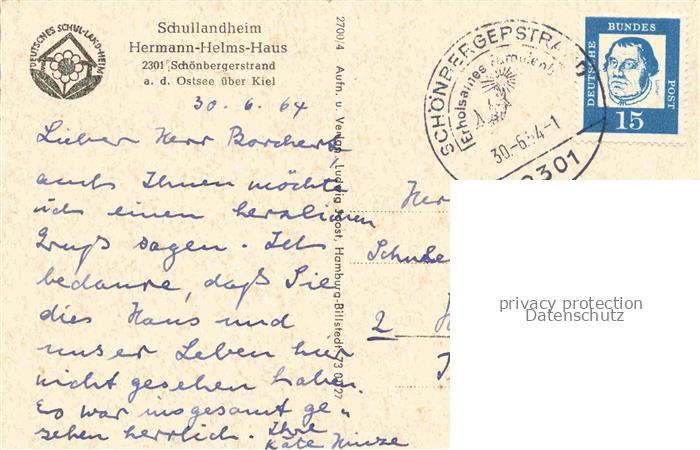 DEUTSCHES SCHUL-LAND-HEIM
Schullandheim
Hermann-Helms-Haus
2301 Schönbergerstrand
a. d. Ostsee über Kiel
30. 6. 64
Lieber Herr Borchert,
auch Ihnen möchte
ich einen herzlichen
Gruß sagen. Ich
bedaure, daß Sie
dies Haus und
unser Leben hier
nicht gesehen haben.
Es war insgesamt ge-
sehen herrlich. Ihre
Käte Hinze
2700/4 Aufn. u. Verlag Ludwig Jost, Hamburg-Billstedt
SCHÖNBERGERSTRAND
Erholsames
30.-6.64-1
2301
DEUTSCHE BUNDES POST
15
Her
Schule
2 H
privacy protection
Datenschutz